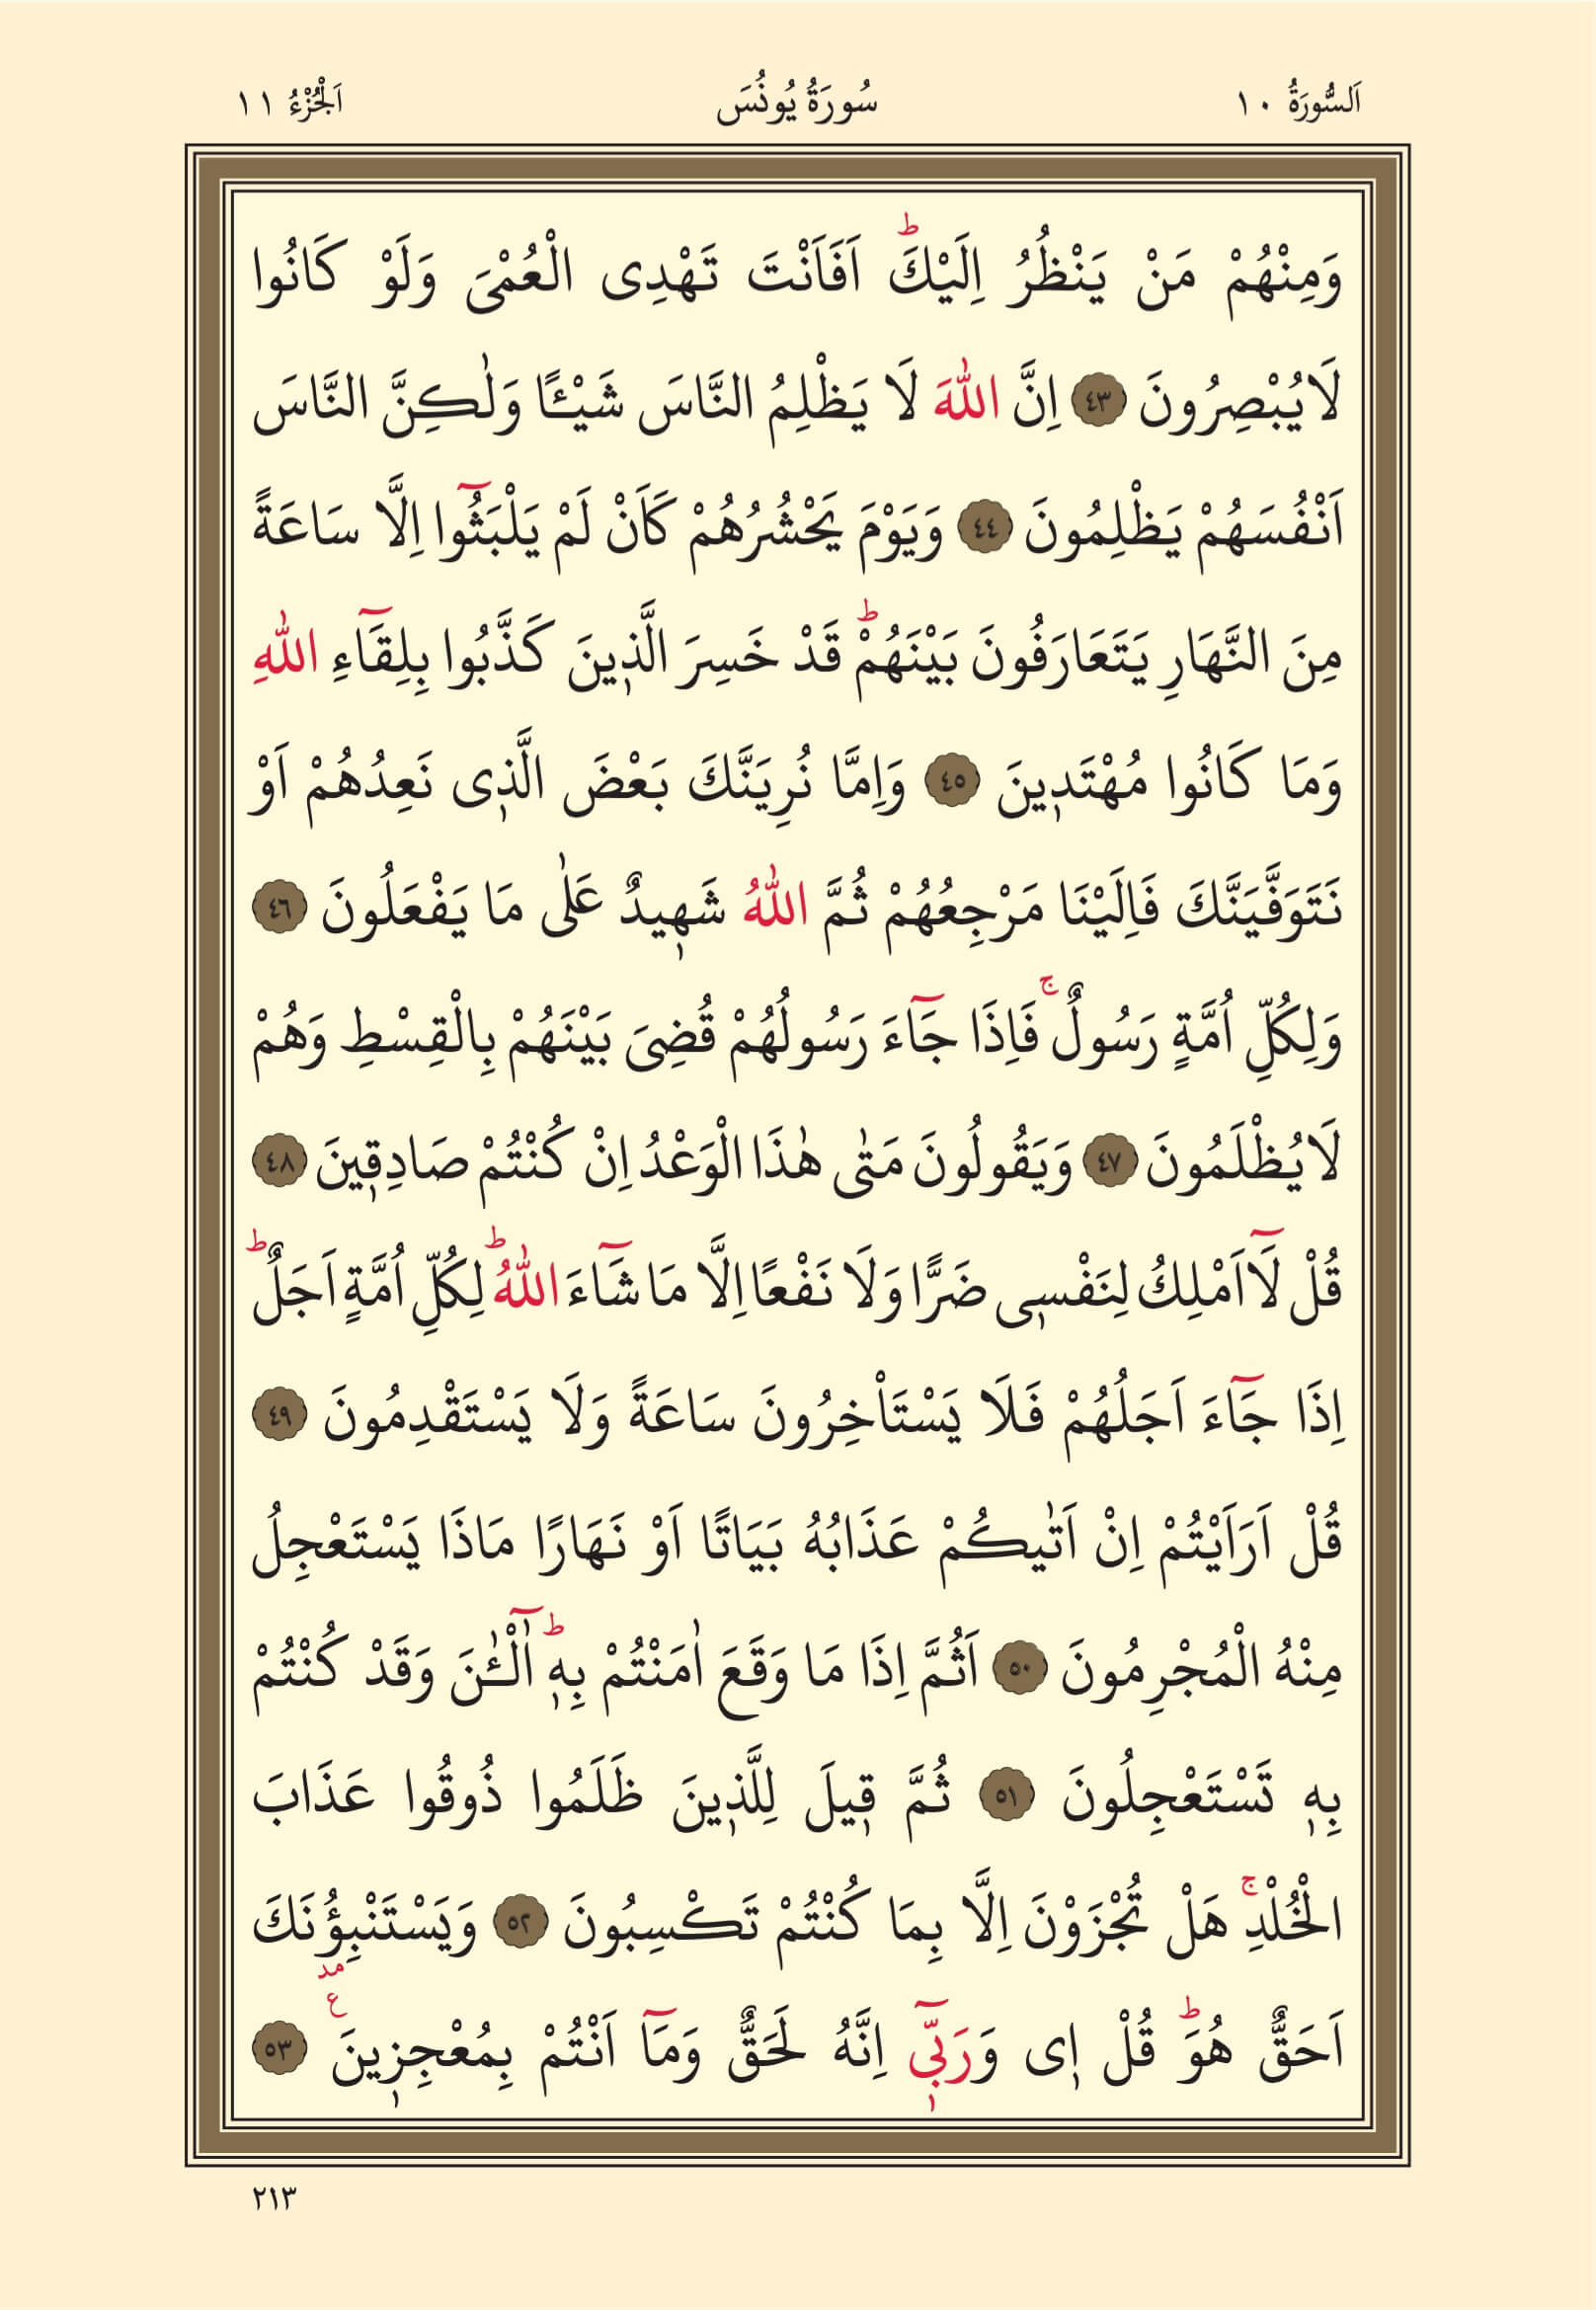 اَلسُّورَةُ ١٠ سُورَةُ يُونُسَ اَلْجُزْءُ ١١
وَمِنْهُمْ مَنْ يَنْظُرُ اِلَيْكَۜ اَفَاَنْتَ تَهْدِى الْعُمْىَ وَلَوْ كَانُوا
لَا يُبْصِرُونَ ﴿٤٣﴾ اِنَّ اللّٰهَ لَا يَظْلِمُ النَّاسَ شَيْـًٔا وَلٰكِنَّ النَّاسَ
اَنْفُسَهُمْ يَظْلِمُونَ ﴿٤٤﴾ وَيَوْمَ يَحْشُرُهُمْ كَاَنْ لَمْ يَلْبَثُٓوا اِلَّا سَاعَةً
مِنَ النَّهَارِ يَتَعَارَفُونَ بَيْنَهُمْؕ قَدْ خَسِرَ الَّذ۪ينَ كَذَّبُوا بِلِقَٓاءِ اللّٰهِ
وَمَا كَانُوا مُهْتَد۪ينَ ﴿٤٥﴾ وَاِمَّا نُرِيَنَّكَ بَعْضَ الَّذ۪ى نَعِدُهُمْ اَوْ
نَتَوَفَّيَنَّكَ فَاِلَيْنَا مَرْجِعُهُمْ ثُمَّ اللّٰهُ شَه۪يدٌ عَلٰى مَا يَفْعَلُونَ ﴿٤٦﴾
وَلِكُلِّ اُمَّةٍ رَسُولٌۚ فَاِذَا جَٓاءَ رَسُولُهُمْ قُضِىَ بَيْنَهُمْ بِالْقِسْطِ وَهُمْ
لَا يُظْلَمُونَ ﴿٤٧﴾ وَيَقُولُونَ مَتٰى هٰذَا الْوَعْدُ اِنْ كُنْتُمْ صَادِق۪ينَ ﴿٤٨﴾
قُلْ لَٓا اَمْلِكُ لِنَفْس۪ى ضَرًّا وَلَا نَفْعًا اِلَّا مَا شَٓاءَ اللّٰهُؕ لِكُلِّ اُمَّةٍ اَجَلٌؕ
اِذَا جَٓاءَ اَجَلُهُمْ فَلَا يَسْتَاْخِرُونَ سَاعَةً وَلَا يَسْتَقْدِمُونَ ﴿٤٩﴾
قُلْ اَرَاَيْتُمْ اِنْ اَتٰيكُمْ عَذَابُهُ بَيَاتًا اَوْ نَهَارًا مَاذَا يَسْتَعْجِلُ
مِنْهُ الْمُجْرِمُونَ ﴿٥٠﴾ اَثُمَّ اِذَا مَا وَقَعَ اٰمَنْتُمْ بِه۪ؕ اٰۤلْـٰٔنَ وَقَدْ كُنْتُمْ
بِه۪ تَسْتَعْجِلُونَ ﴿٥١﴾ ثُمَّ ق۪يلَ لِلَّذ۪ينَ ظَلَمُوا ذُوقُوا عَذَابَ
الْخُلْدِۚ هَلْ تُجْزَوْنَ اِلَّا بِمَا كُنْتُمْ تَكْسِبُونَ ﴿٥٢﴾ وَيَسْتَنْبِؤُ۫نَكَ
مد
ع
اَحَقٌّ هُوَؕ قُلْ ا۪ى وَرَبّ۪ٓى اِنَّهُ لَحَقٌّ وَمَٓا اَنْتُمْ بِمُعْجِز۪ينَ ﴿٥٣﴾
٢١٣